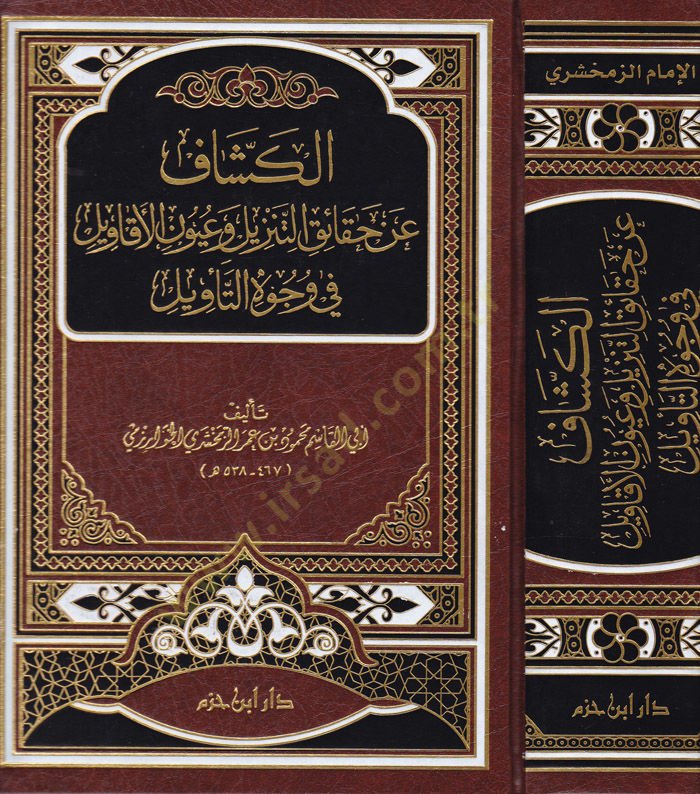 الكشاف
عن حقائق التنزيل وعيون الأقاويل
في وجوه التأويل
تأليف
أبي القاسم محمود بن عمر الزمخشري الخوارزمي
(٤٦٧ - ٥٣٨ هـ)
دار ابن حزم
الإمام الزمخشري
الكشاف
عن حقائق التنزيل وعيون الأقاويل
في وجوه التأويل
دار ابن حزم
www.irsad.com.tr